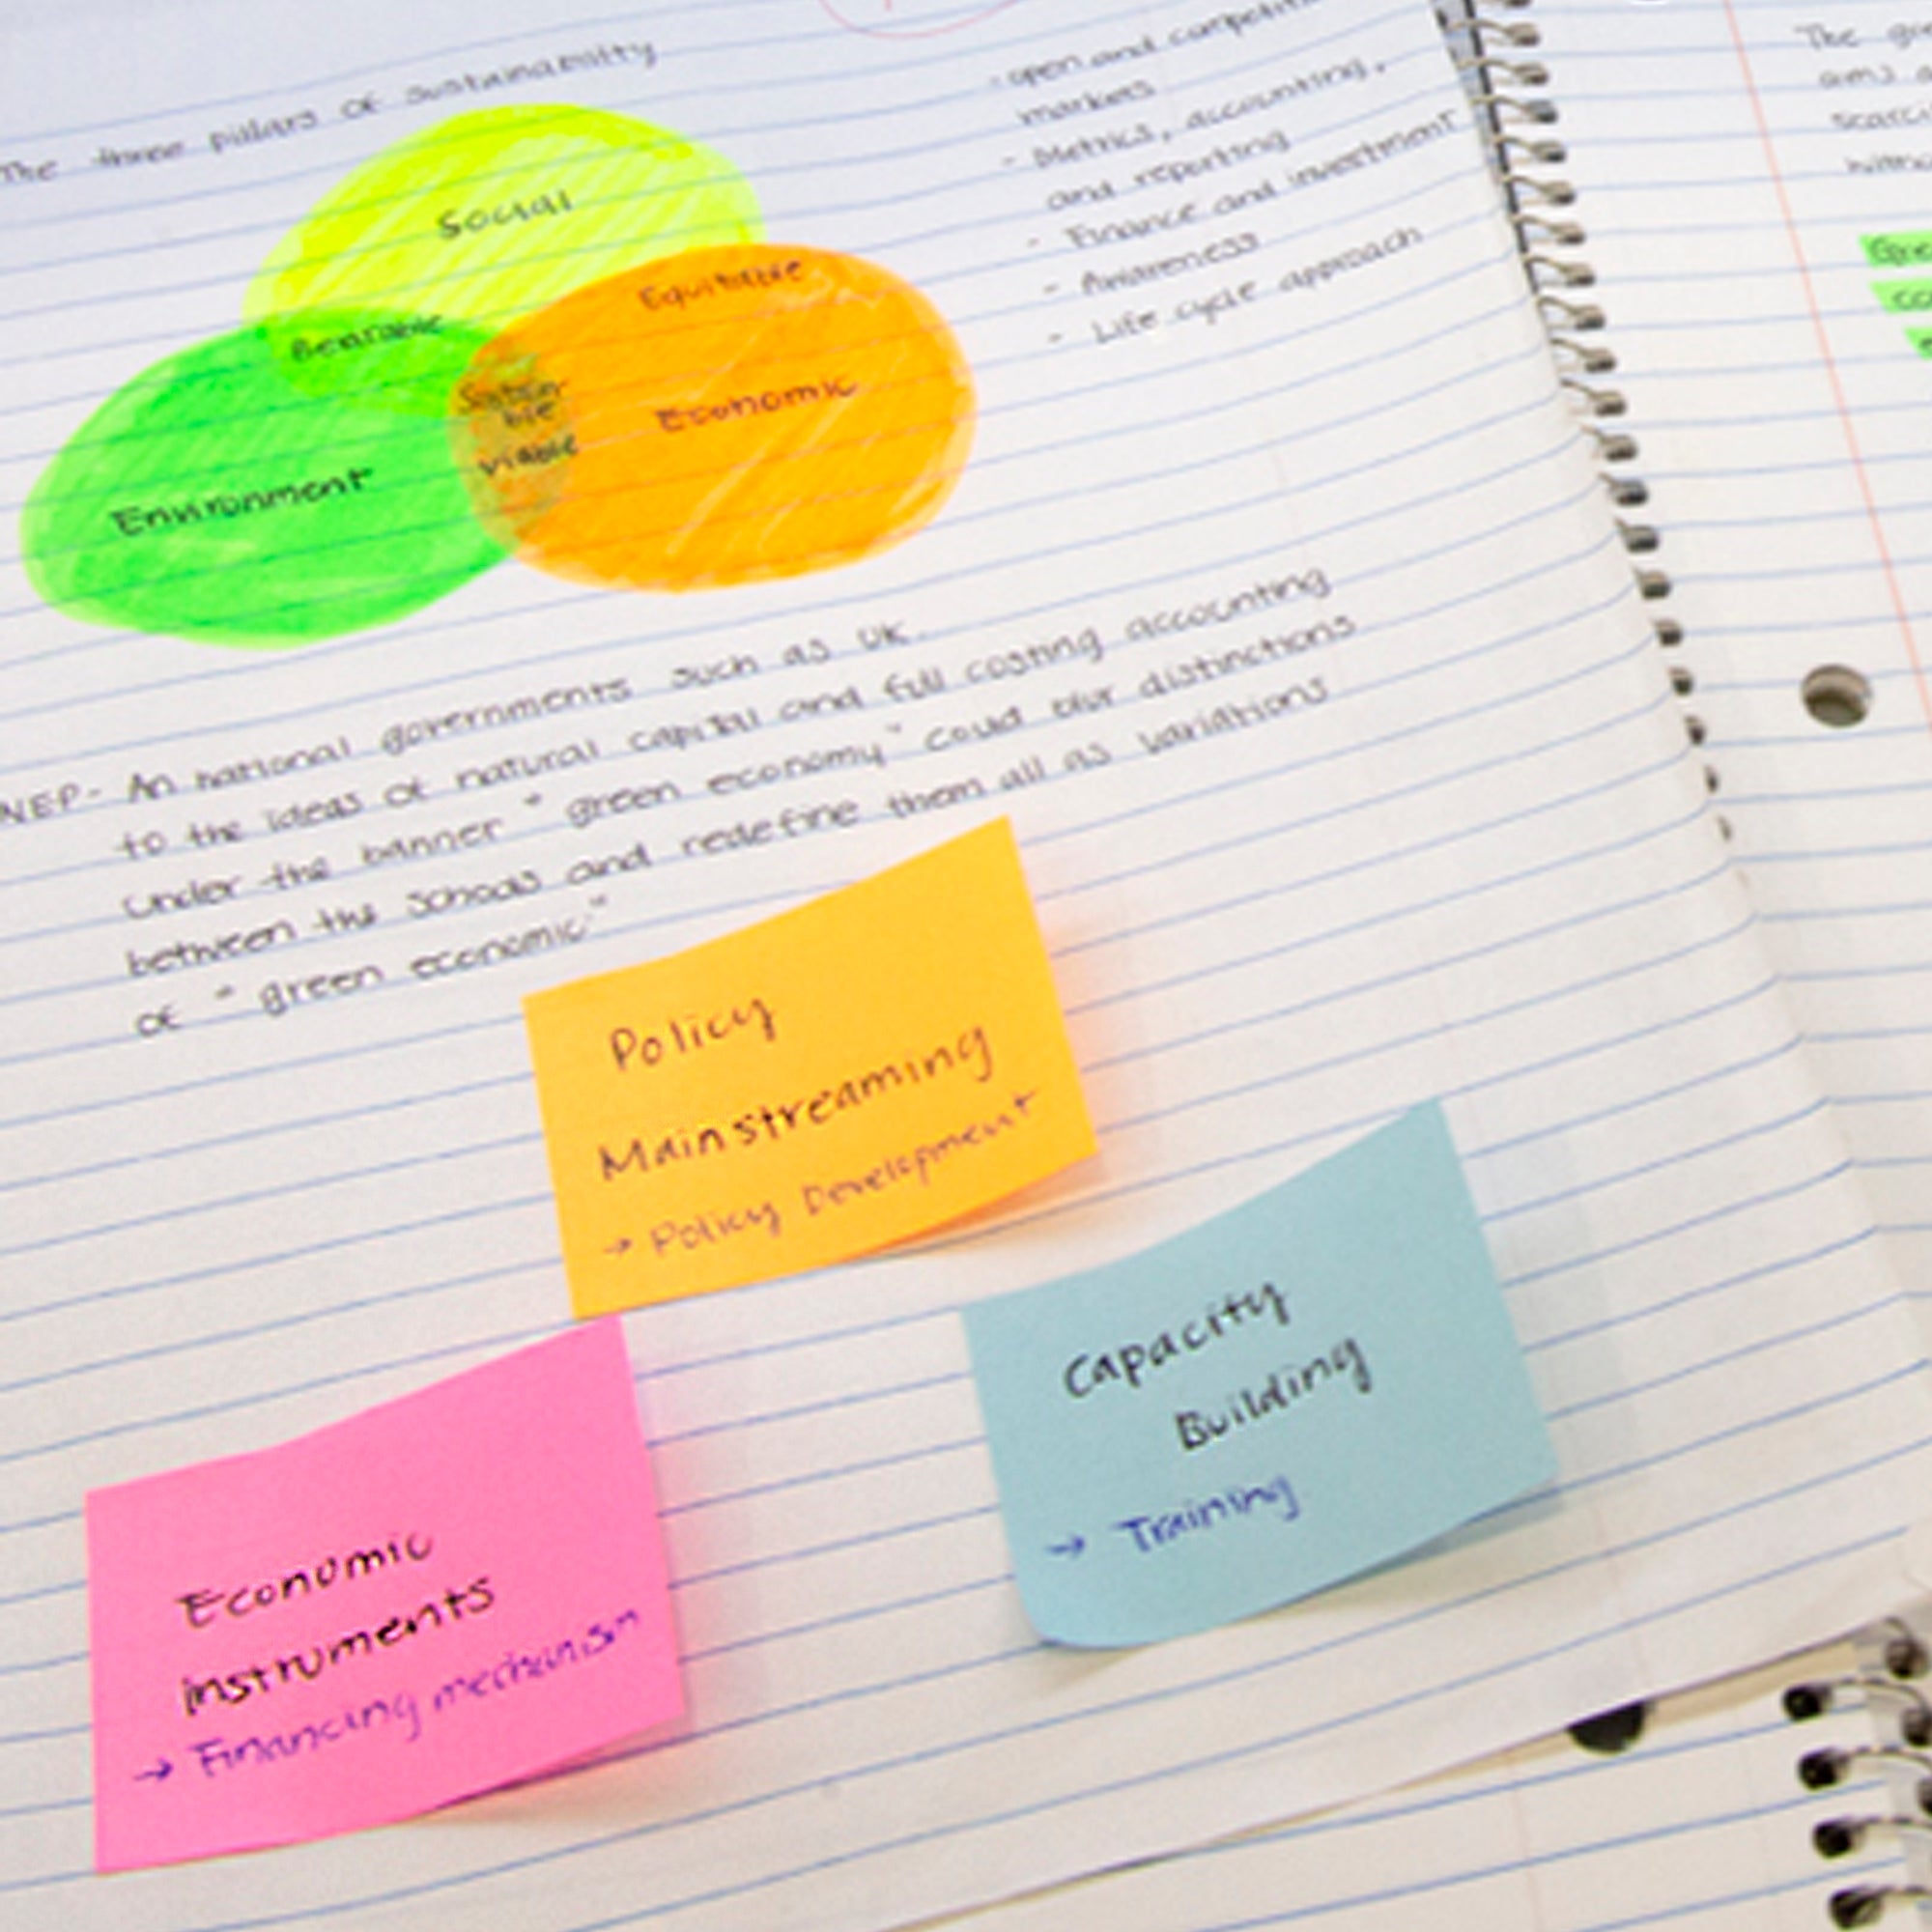 The three pillars of sustainability
Social
Equitable
Bearable
Sustain-
ble
viable
Economic
Environment
- open and competitive
markets
- Metrics, accounting,
and reporting
- Finance and investment
- Awareness
- Life cycle approach
NEP- An national governments such as UK.
to the ideas of natural capital and full costing accounting
under the banner "green economy" could blur distinctions
between the schools and redefine them all as variations
of "green economic."
Policy
Mainstreaming
→ Policy Development
Capacity
Building
→ Training
Economic
Instruments
→ Financing mechanism
The